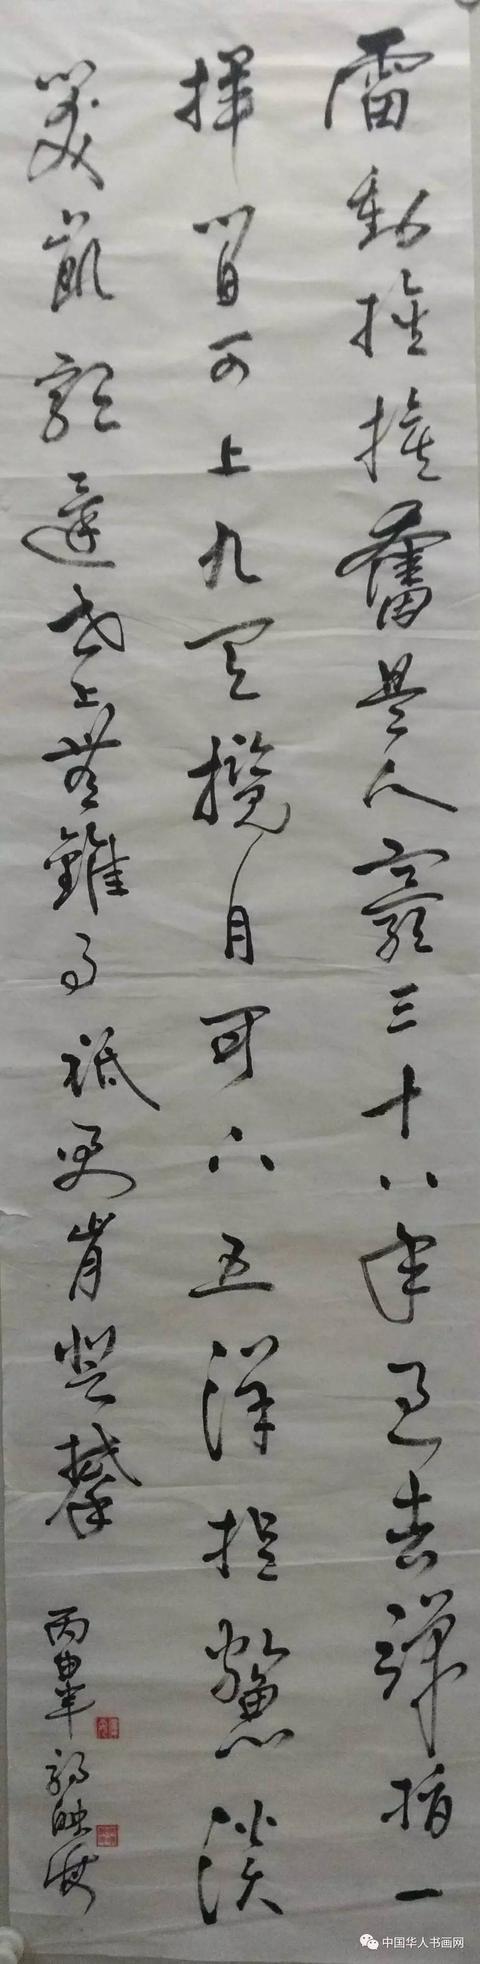 雷動旌旗奮是人寰三十八年過去彈指一
揮間可上九天攬月可下五洋捉鱉談
笑凱歌還世上無難事祗要肯登攀
丙申年
中国华人书画网